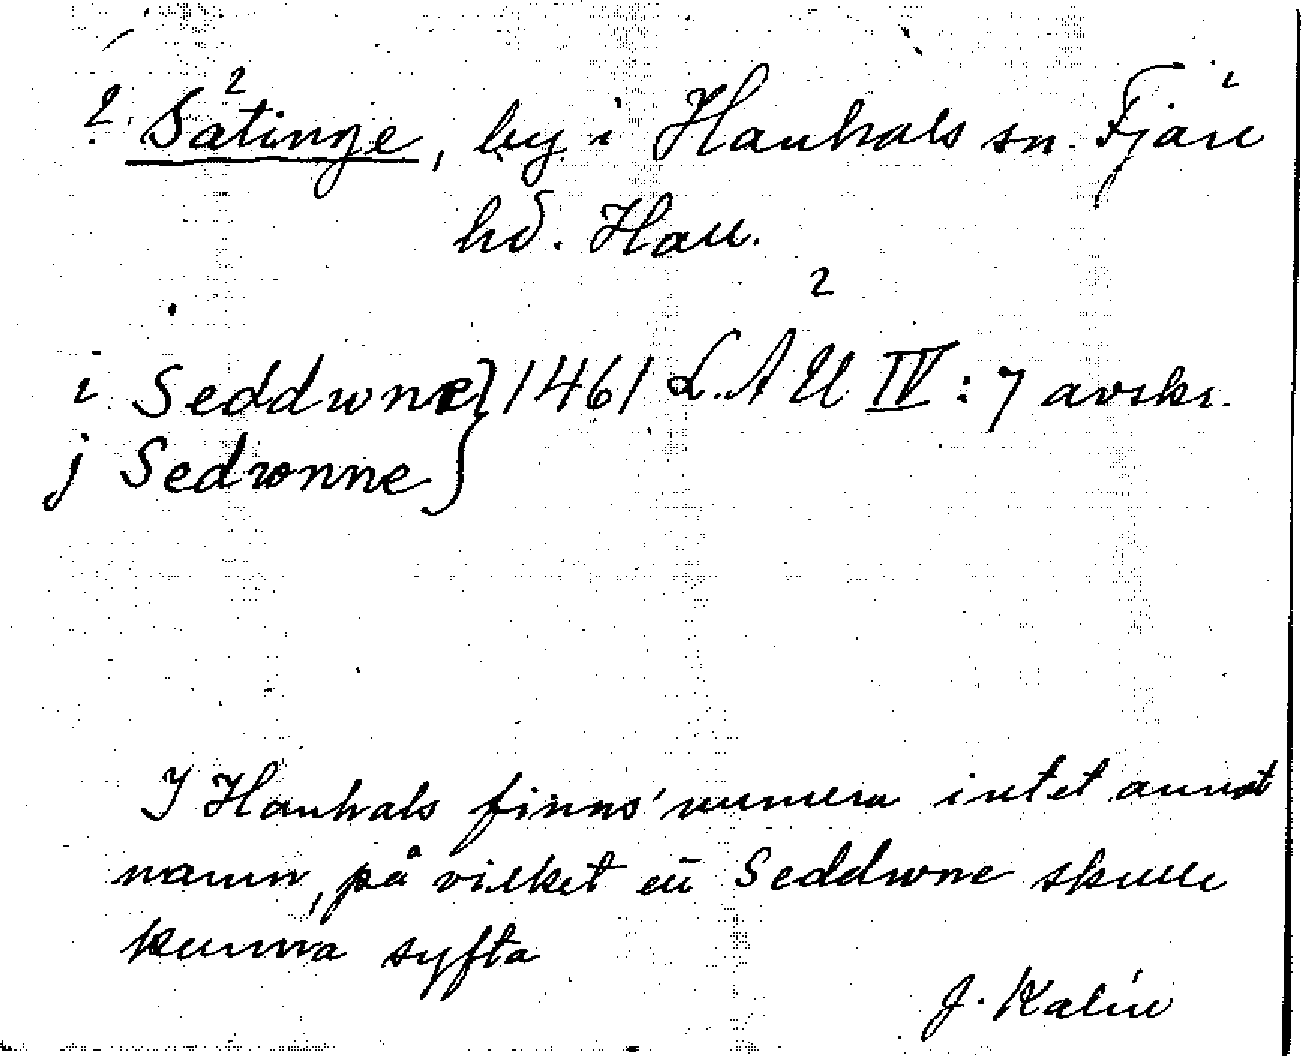 ? Sätinge, by i Hanhals sn. Fjäre
hd. Hall.
i Seddwne } 1461 LÄU IV: 7 avskr.
j Sedwnne }
I Hanhals finns numera intet annat
namn, på vilket ett Seddwne skulle
kunna syfta
J. Kalén